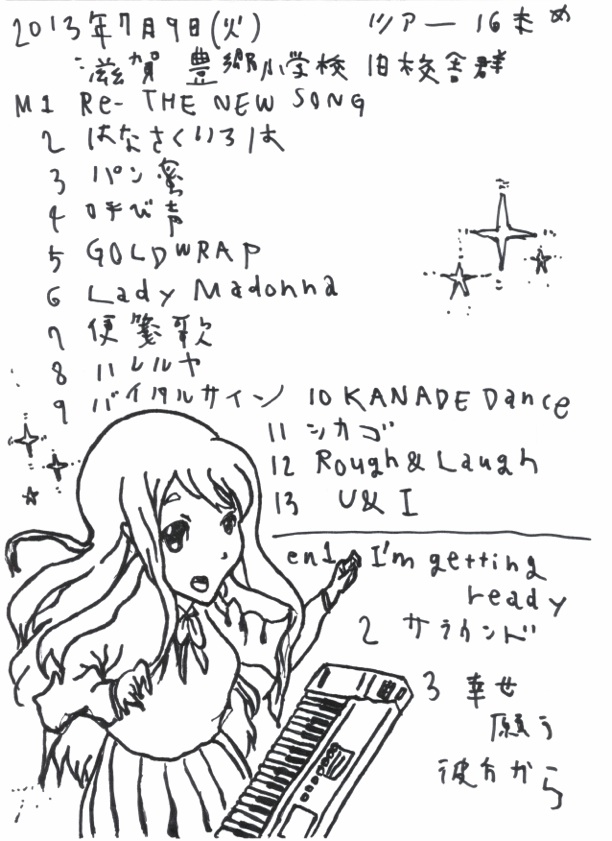 2013年7月9日(火) ツアー 16本め
滋賀 豊郷小学校 旧校舎群
M1 Re- THE NEW SONG
2 はなさくいろは
3 パン蜜
4 呼び声
5 GOLD WRAP
6 Lady Madonna
7 便箋歌
8 ハレルヤ
9 バイタルサイン 10 KANADE Dance
11 シカゴ
12 Rough & Laugh
13 U & I
en1 I'm getting
ready
2 サラウンド
3 幸せ
願う
彼方から